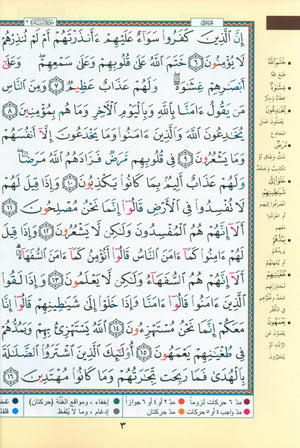 إِنَّ ٱلَّذِينَ كَفَرُوا۟ سَوَآءٌ عَلَيْهِمْ ءَأَنذَرْتَهُمْ أَمْ لَمْ تُنذِرْهُمْ
لَا يُؤْمِنُونَ ٦ خَتَمَ ٱللَّهُ عَلَىٰ قُلُوبِهِمْ وَعَلَىٰ سَمْعِهِمْ وَعَلَىٰٓ
أَبْصَـٰرِهِمْ غِشَـٰوَةٌ وَلَهُمْ عَذَابٌ عَظِيمٌ ٧ وَمِنَ ٱلنَّاسِ
مَن يَقُولُ ءَامَنَّا بِٱللَّهِ وَبِٱلْيَوْمِ ٱلْـَٔاخِرِ وَمَا هُم بِمُؤْمِنِينَ ٨
يُخَـٰدِعُونَ ٱللَّهَ وَٱلَّذِينَ ءَامَنُوا۟ وَمَا يَخْدَعُونَ إِلَّآ أَنفُسَهُمْ
وَمَا يَشْعُرُونَ ٩ فِى قُلُوبِهِم مَّرَضٌ فَزَادَهُمُ ٱللَّهُ مَرَضًا
وَلَهُمْ عَذَابٌ أَلِيمٌۢ بِمَا كَانُوا۟ يَكْذِبُونَ ١٠ وَإِذَا قِيلَ لَهُمْ
لَا تُفْسِدُوا۟ فِى ٱلْأَرْضِ قَالُوٓا۟ إِنَّمَا نَحْنُ مُصْلِحُونَ ١١
أَلَآ إِنَّهُمْ هُمُ ٱلْمُفْسِدُونَ وَلَـٰكِن لَّا يَشْعُرُونَ ١٢ وَإِذَا قِيلَ
لَهُمْ ءَامِنُوا۟ كَمَآ ءَامَنَ ٱلنَّاسُ قَالُوٓا۟ أَنُؤْمِنُ كَمَآ ءَامَنَ ٱلسُّفَهَآءُ
أَلَآ إِنَّهُمْ هُمُ ٱلسُّفَهَآءُ وَلَـٰكِن لَّا يَعْلَمُونَ ١٣ وَإِذَا لَقُوا۟
ٱلَّذِينَ ءَامَنُوا۟ قَالُوٓا۟ ءَامَنَّا وَإِذَا خَلَوْا۟ إِلَىٰ شَيَـٰطِينِهِمْ قَالُوٓا۟ إِنَّا
مَعَكُمْ إِنَّمَا نَحْنُ مُسْتَهْزِءُونَ ١٤ ٱللَّهُ يَسْتَهْزِئُ بِهِمْ وَيَمُدُّهُمْ
فِى طُغْيَـٰنِهِمْ يَعْمَهُونَ ١٥ أُو۟لَـٰٓئِكَ ٱلَّذِينَ ٱشْتَرَوُا۟ ٱلضَّلَـٰلَةَ
بِٱلْهُدَىٰ فَمَا رَبِحَت تِّجَـٰرَتُهُمْ وَمَا كَانُوا۟ مُهْتَدِينَ ١٦
خَتَمَ ٱللَّهُ
طَبَعَ اللهُ
غِشَـٰوَةٌ
يُخَـٰدِعُونَ
مَرَضٌ
شَيَـٰطِينِهِمْ
يَمُدُّهُمْ
طُغْيَـٰنِهِمْ
يَعْمَهُونَ
مدّ ٦ حركات لزوماً مدّ ٢ أو ٤ أو ٦ جوازاً إخفاء، ومواقع الغُنَّة (حركتان)
مدّ واجب ٤ أو ٥ حركات مدّ حركتان إدغام، وما لا يُلفظ
٣